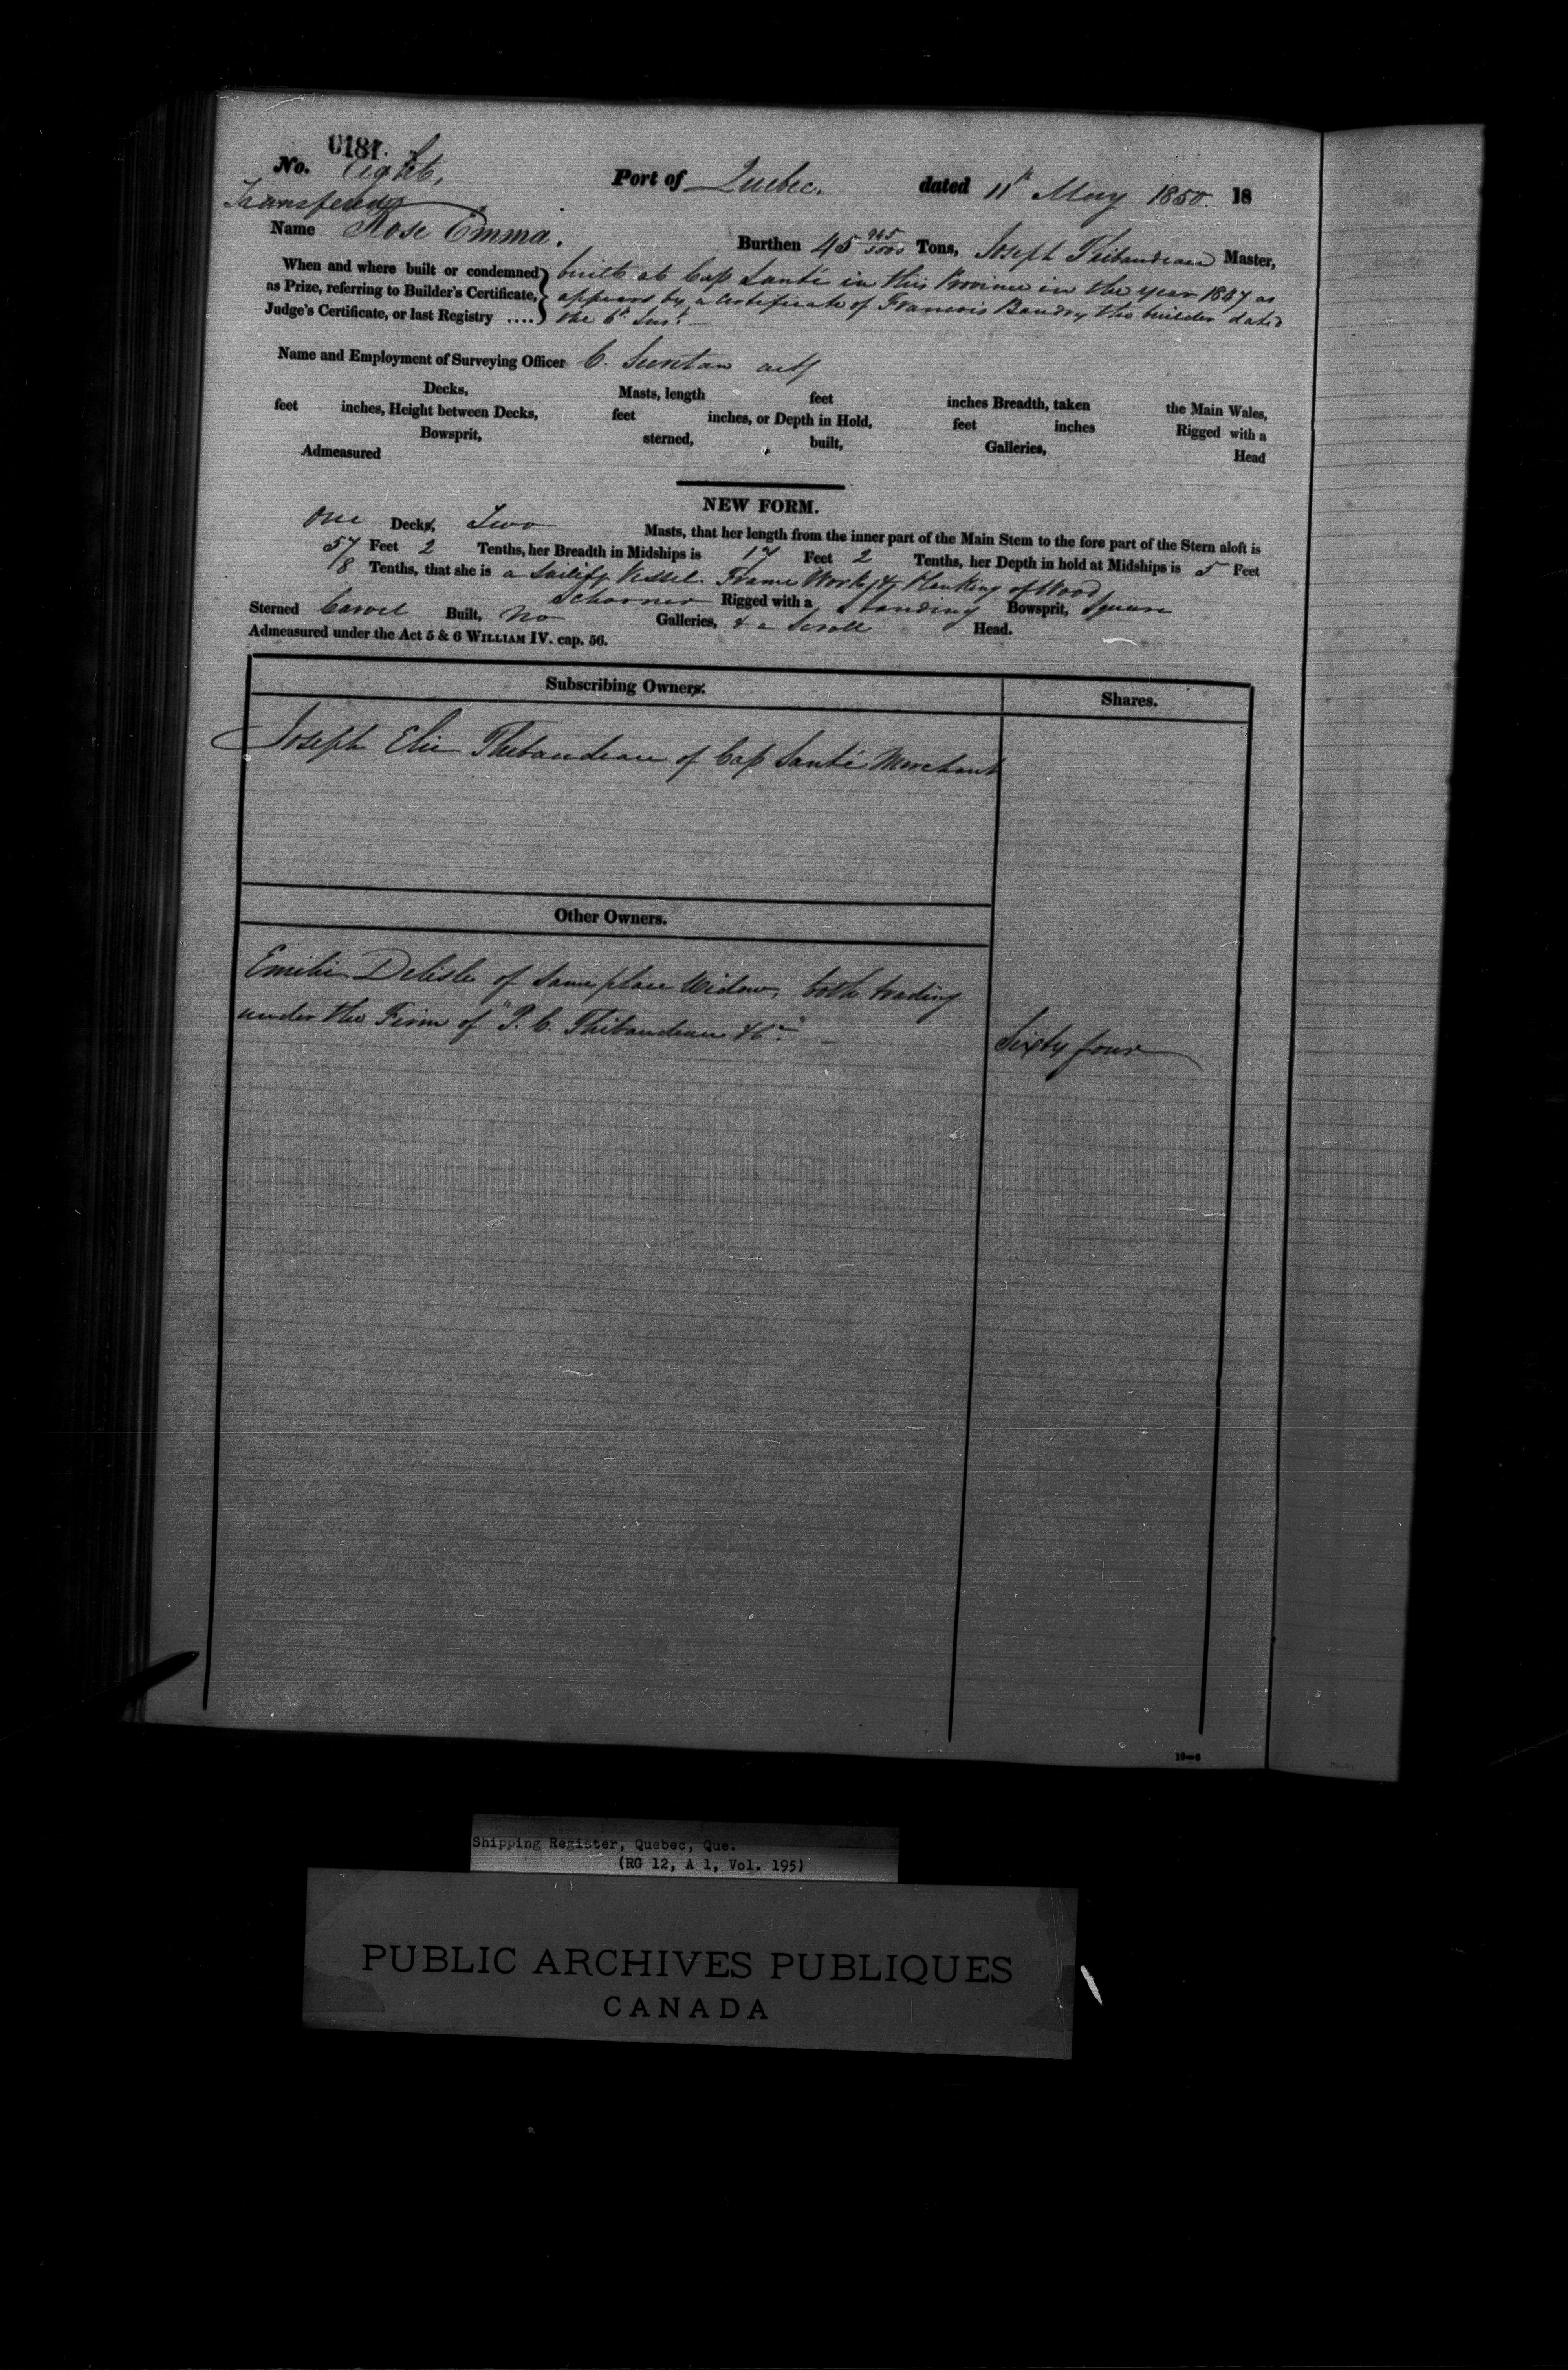 0181.
No. Eight, Port of Quebec. dated 11th May 1850. 18
Transferred
Name Rose Emma. Burthen 45 945/3500 Tons, Joseph Thibaudeau Master,
When and where built or condemned as Prize, referring to Builder's Certificate, Judge's Certificate, or last Registry ....
built at Cap Santé in this Province in the year 1847 as
appears by a Certificate of Francois Baudry the builder dated
the 6th Inst.
Name and Employment of Surveying Officer C. Secretan
Decks, Masts, length feet inches Breadth, taken the Main Wales,
feet inches, Height between Decks, feet inches, or Depth in Hold, feet inches Rigged with a
Bowsprit, sterned, built, Galleries, Head
Admeasured
NEW FORM.
One Decks, Two Masts, that her length from the inner part of the Main Stem to the fore part of the Stern aloft is
57 Feet 2 Tenths, her Breadth in Midships is 17 Feet 2 Tenths, her Depth in hold at Midships is 5 Feet
8 Tenths, that she is a Sailing Vessel. Frame Work & Planking of Wood
Schooner Rigged with a Standing Bowsprit, Square
Sterned Carvel Built, No Galleries, & a Scroll Head.
Admeasured under the Act 5 & 6 WILLIAM IV. cap. 56.
Subscribing Owners. Shares.
Joseph Elie Thibaudeau of Cap Santé Merchant
Other Owners.
Emilie Delisle of same place Widow, both trading
under the Firm of "P. C. Thibaudeau & Co."
Sixty four
16—6
Shipping Register, Quebec, Que.
(RG 12, A 1, Vol. 195)
PUBLIC ARCHIVES PUBLIQUES
CANADA